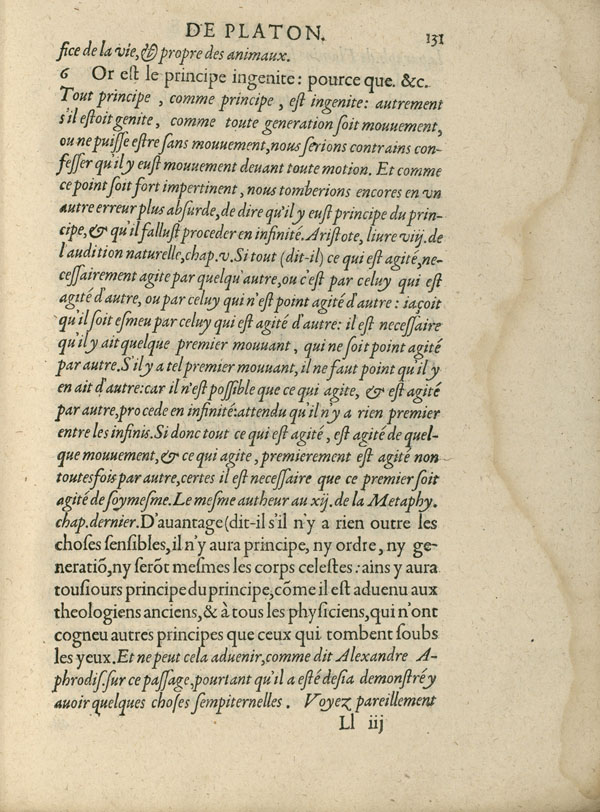 DE PLATON. 131
fice de la vie, & propre des animaux.
6 Or est le principe ingenite: pource que. &c.
Tout principe, comme principe, est ingenite: autrement
s'il estoit genite, comme toute generation soit mouuement,
ou ne puisse estre sans mouuement, nous serions contrains con-
fesser qu'il y eust mouuement deuant toute motion. Et comme
ce point soit fort impertinent, nous tomberions encores en vn
autre erreur plus absurde, de dire qu'il y eust principe du prin-
cipe, & qu'il fallust proceder en infinité. Aristote, liure viij. de
l'audition naturelle, chap. v. Si tout (dit-il) ce qui est agité, ne-
cessairement agite par quelqu'autre, ou c'est par celuy qui est
agité d'autre, ou par celuy qui n'est point agité d'autre: iaçoit
qu'il soit esmeu par celuy qui est agité d'autre: il est necessaire
qu'il y ait quelque premier mouuant, qui ne soit point agité
par autre. S'il y a tel premier mouuant, il ne faut point qu'il y
en ait d'autre: car il n'est possible que ce qui agite, & est agité
par autre, procede en infinité: attendu qu'il n'y a rien premier
entre les infinis. Si donc tout ce qui est agité, est agité de quel-
que mouuement, & ce qui agite, premierement est agité non
toutesfois par autre, certes il est necessaire que ce premier soit
agité de soymesme. Le mesme autheur au xij. de la Metaphy.
chap. dernier. D'auantage (dit-il s'il n'y a rien outre les
choses sensibles, il n'y aura principe, ny ordre, ny ge-
neratiō, ny serōt mesmes les corps celestes: ains y aura
tousiours principe du principe, cōme il est aduenu aux
theologiens anciens, & à tous les physiciens, qui n'ont
cogneu autres principes que ceux qui tombent soubs
les yeux. Et ne peut cela aduenir, comme dit Alexandre A-
phrodis. sur ce passage, pourtant qu'il a esté desia demonstré y
auoir quelques choses sempiternelles. Voyez pareillement
Ll iij